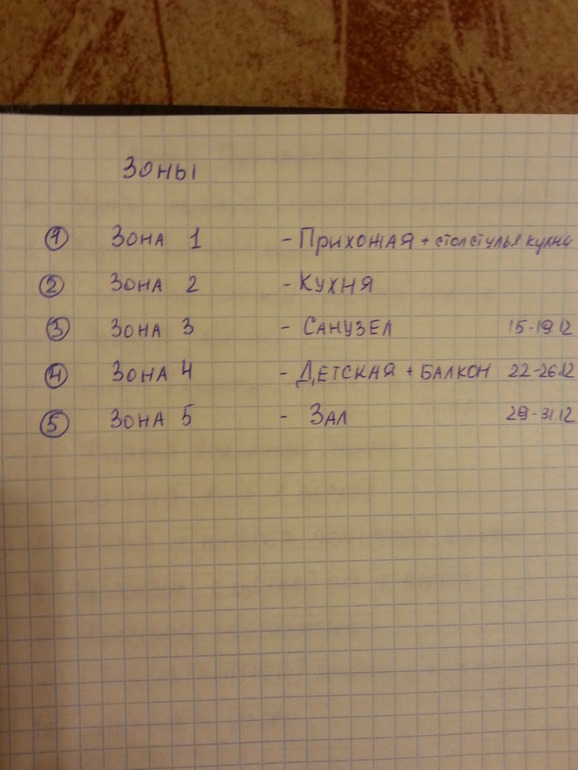 Зоны
1 Зона 1 - Прихожая + стол стулья кухни
2 Зона 2 - Кухня
3 Зона 3 - Санузел 15-19.12
4 Зона 4 - Детская + балкон 22-26.12
5 Зона 5 - Зал 29-31.12